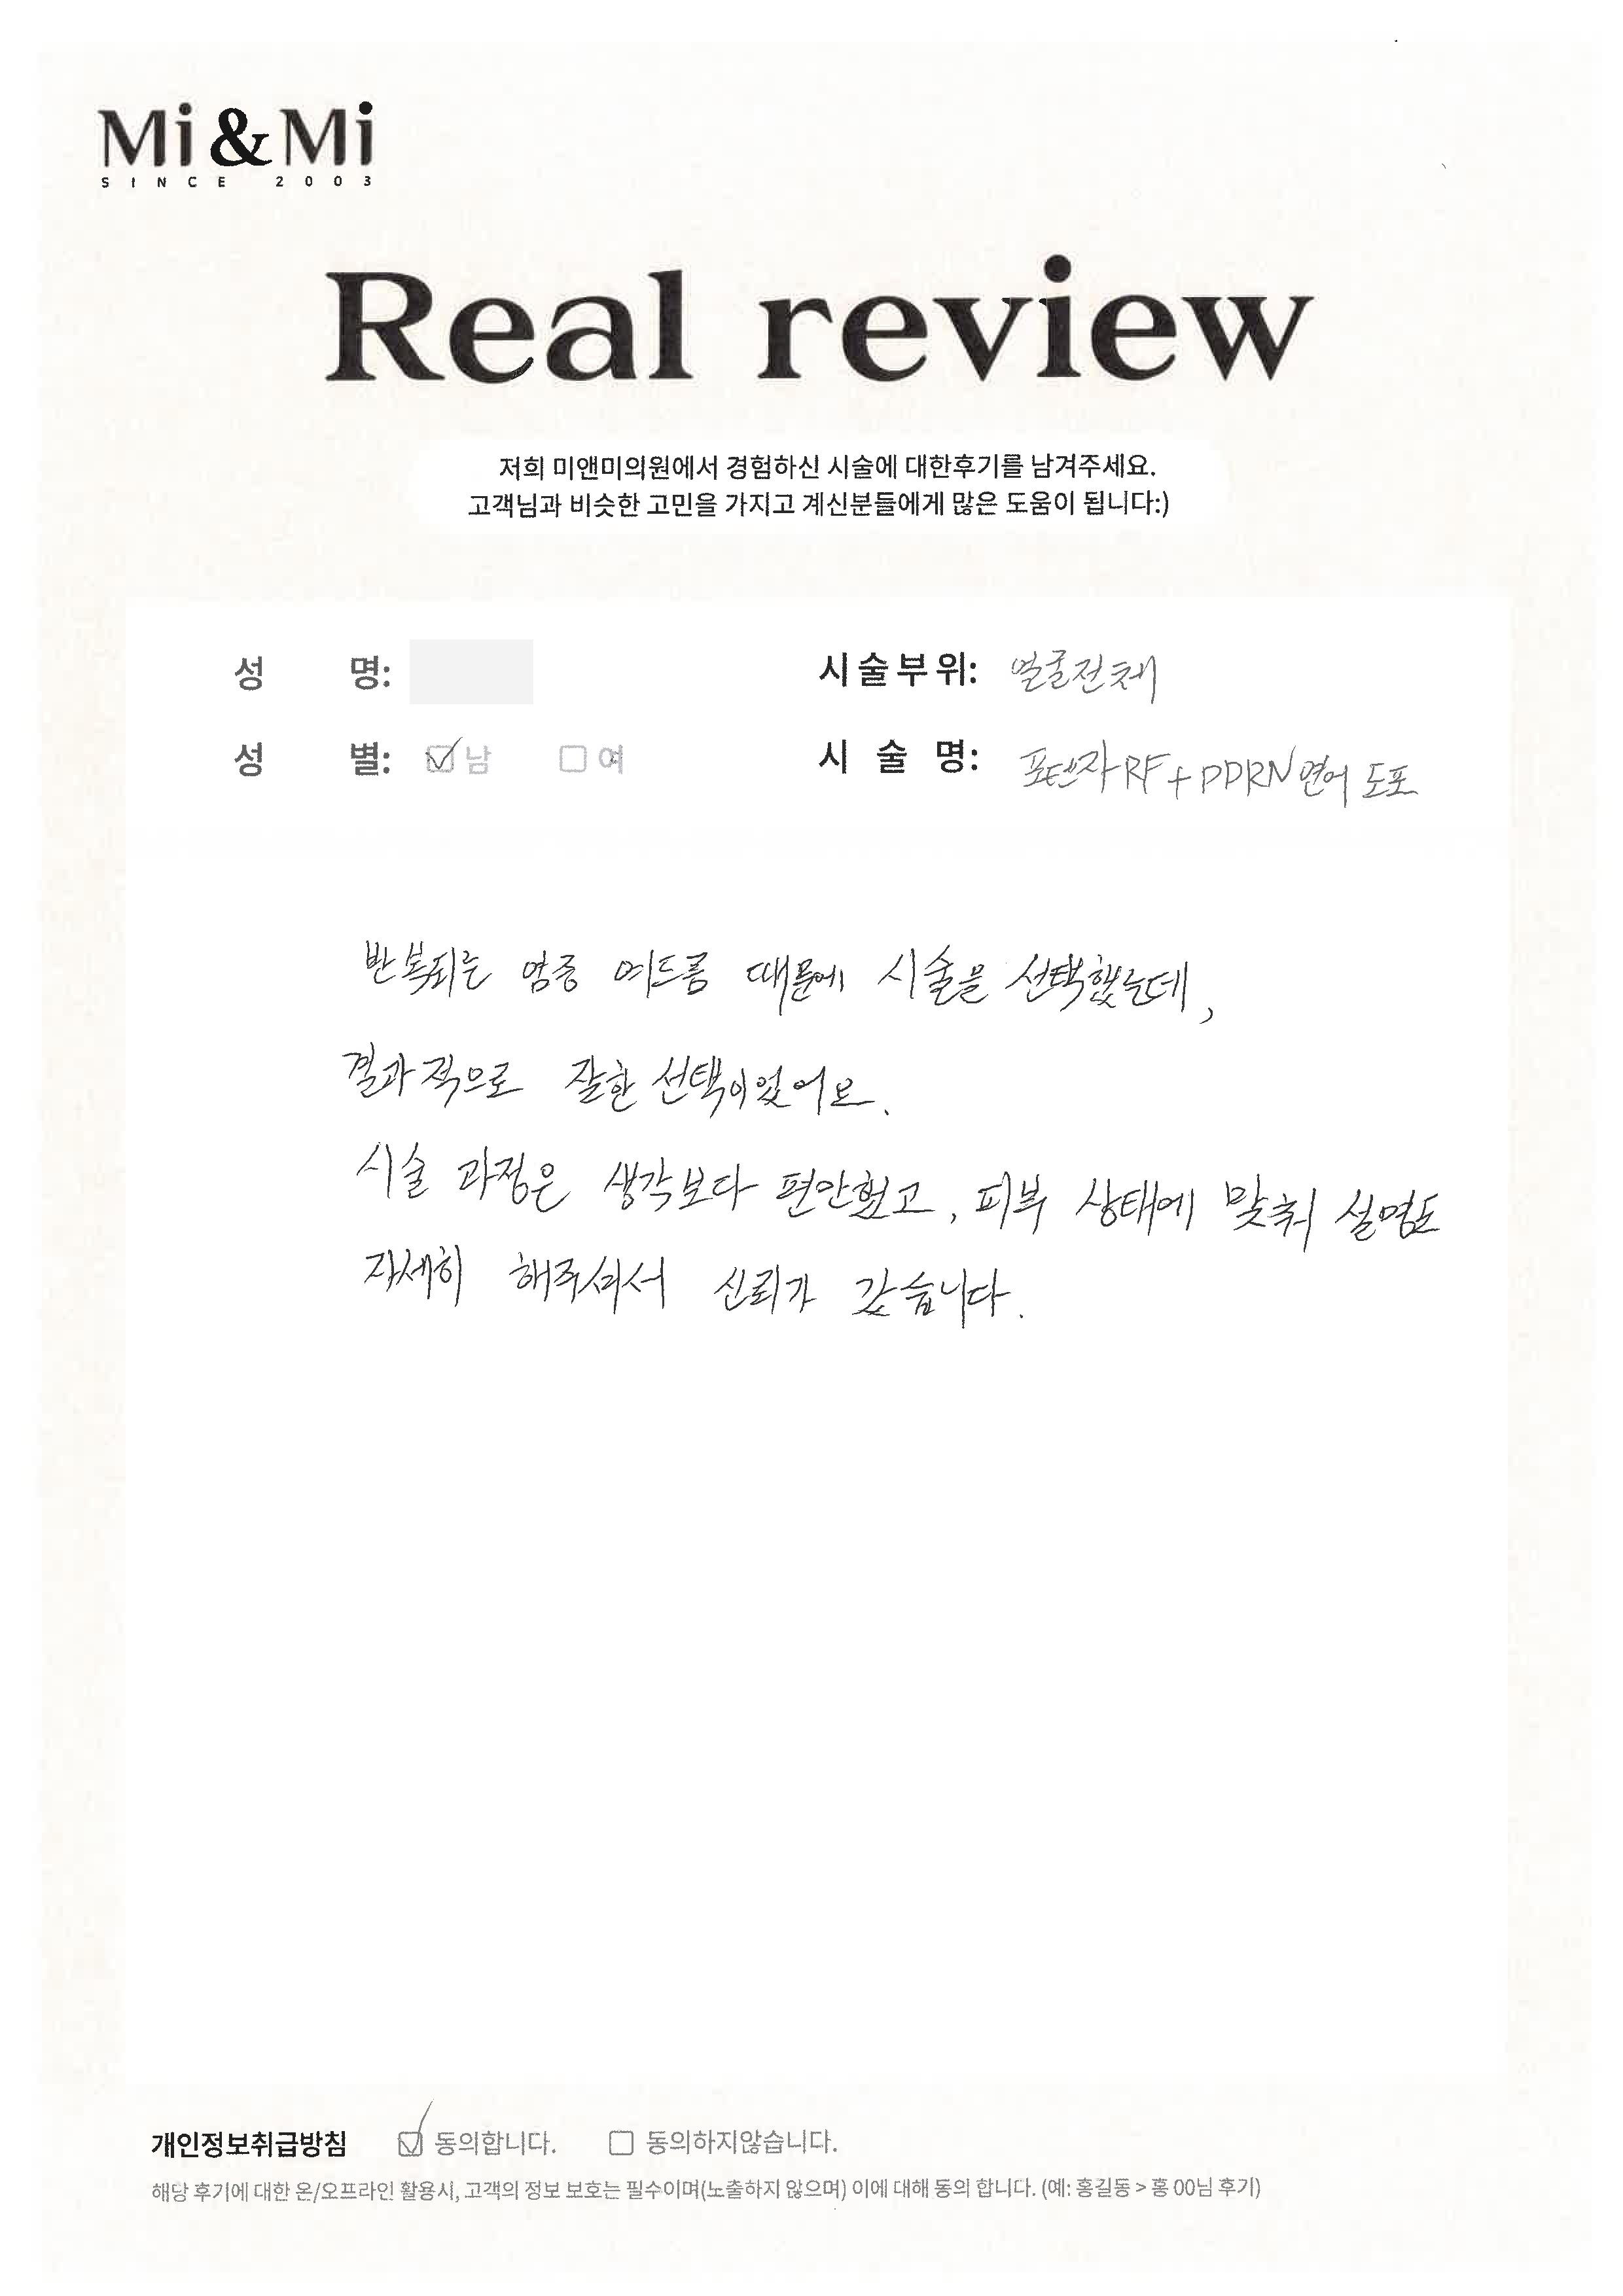 Mi&Mi
SINCE 2003
Real review
저희 미앤미의원에서 경험하신 시술에 대한후기를 남겨주세요.
고객님과 비슷한 고민을 가지고 계신분들에게 많은 도움이 됩니다:)
성 명:
시술부위: 얼굴전체
성 별: 남 여
시 술 명: 포텐자RF+PDRN연어 도포
반복되는 염증 여드름 때문에 시술을 선택했는데,
결과적으로 잘한 선택이었어요.
시술 과정은 생각보다 편안했고, 피부 상태에 맞춰 설명도
자세히 해주셔서 신뢰가 갔습니다.
개인정보취급방침 동의합니다. 동의하지않습니다.
해당 후기에 대한 온/오프라인 활용시, 고객의 정보 보호는 필수이며(노출하지 않으며) 이에 대해 동의 합니다. (예: 홍길동 > 홍 00님 후기)